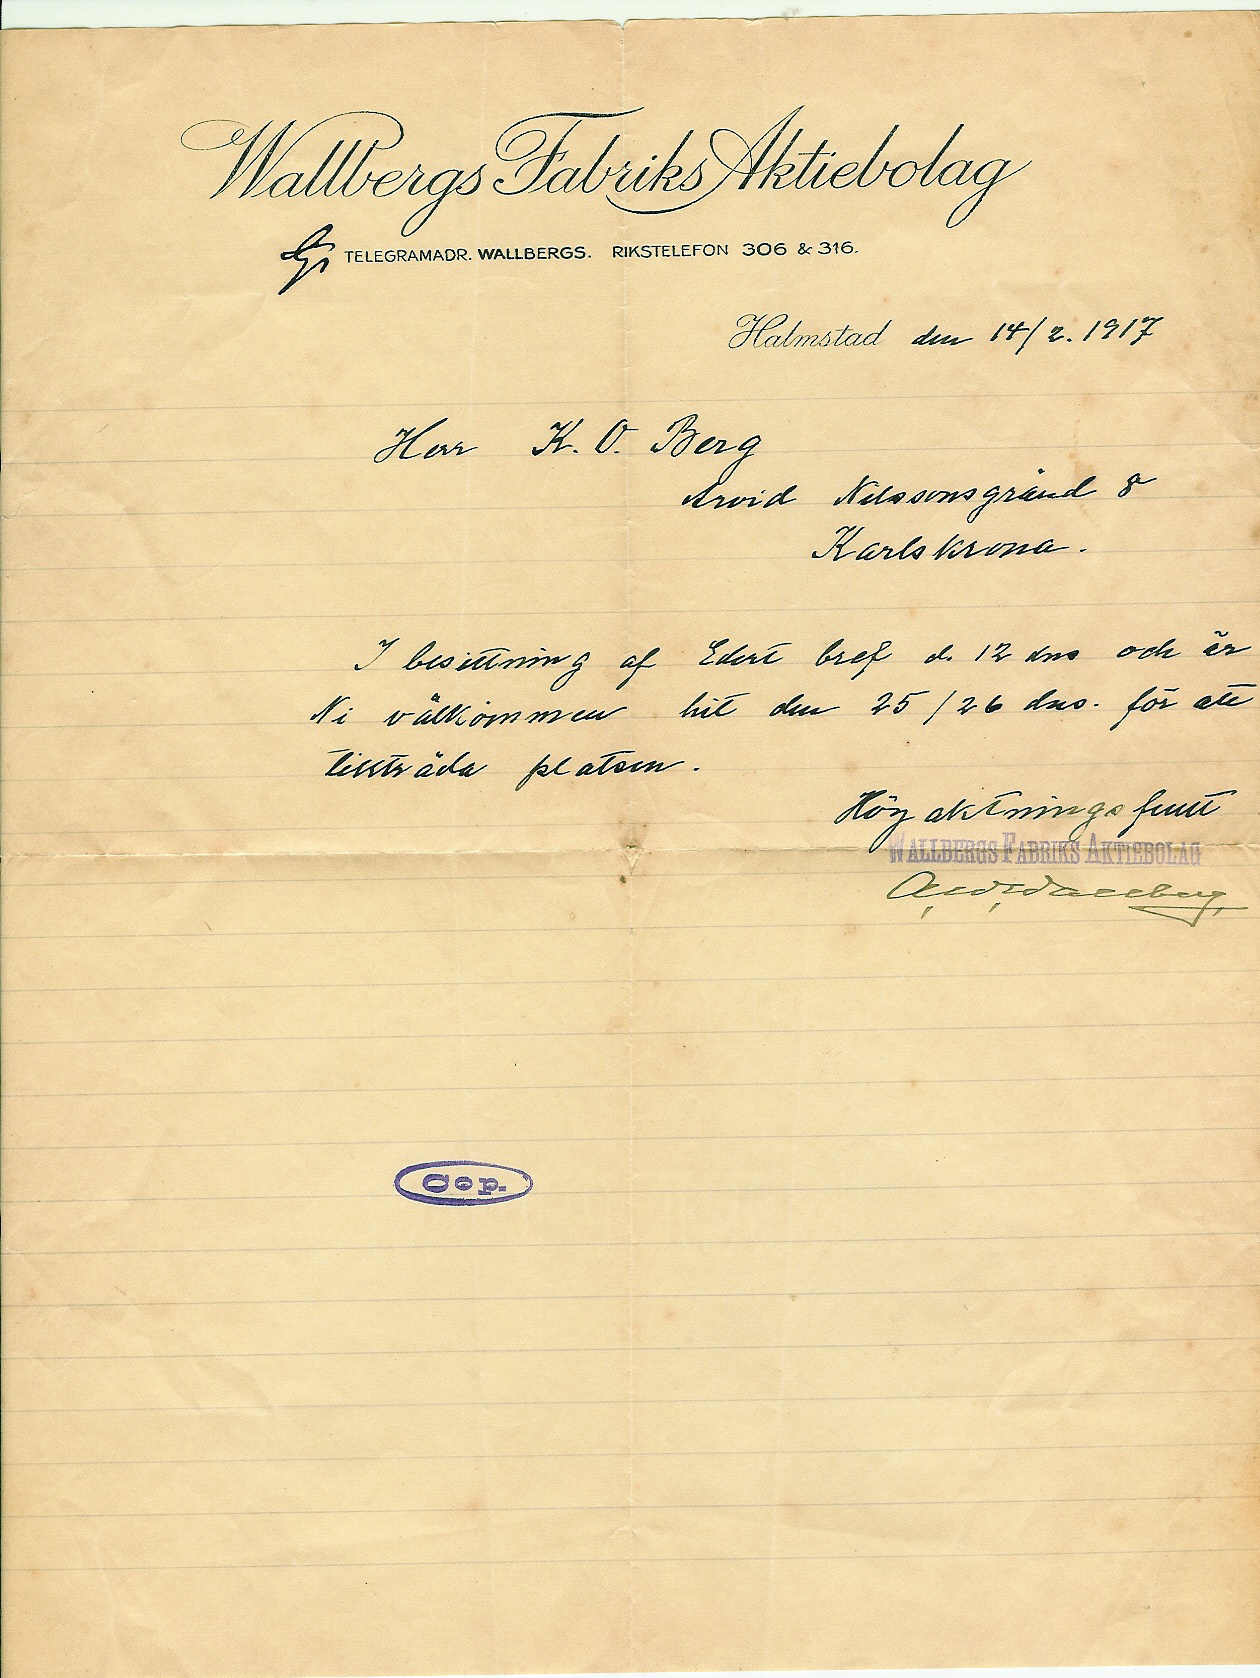 Wallbergs Fabriks Aktiebolag
TELEGRAMADR. WALLBERGS. RIKSTELEFON 306 & 316.
Halmstad den 14/2. 1917
Herr K. O. Berg
Arvid Nilssonsgränd 8
Karlskrona.
I besittning af Edert bref d. 12 dns och är
Ni välkommen hit den 25/26 dns. för att
tillträda platsen.
Högaktningsfullt
WALLBERGS FABRIKS AKTIEBOLAG
Wallberg
Cop.